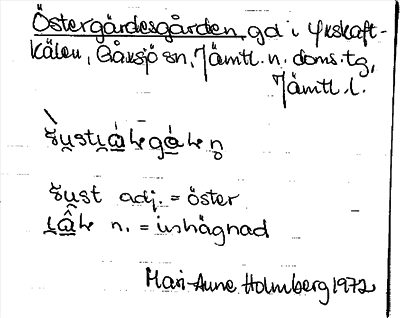 Östergärdesgården, gd i Yxskaft-
kälen, Gåxsjö sn, Jämtl. n. doms. tg,
Jämtl. l.
adj. = öster
n. = inhägnad
Mari-Anne Holmberg 1972